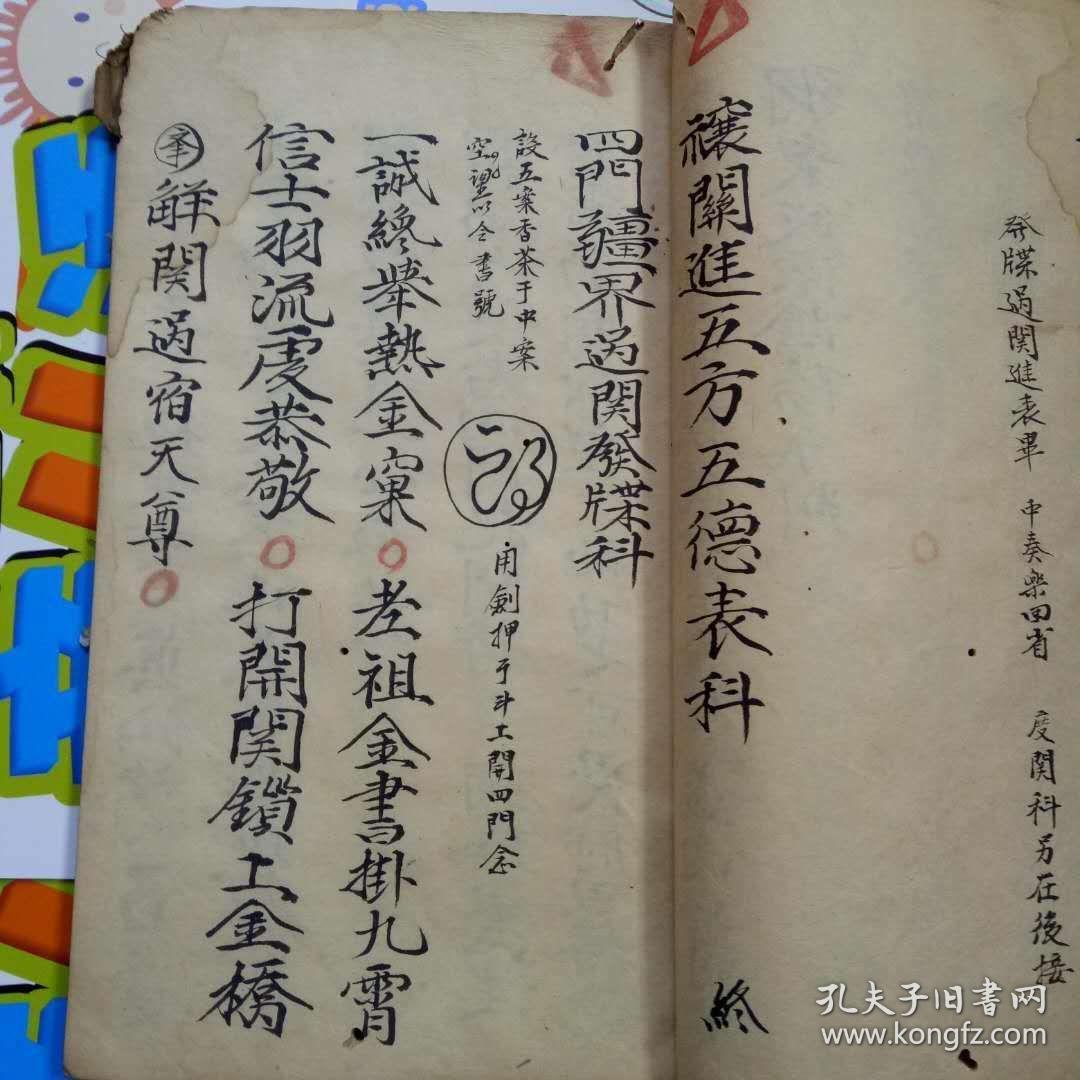 發牒過関進表畢 中奏樂回省 度関科另在後接
禳關進五方五德表科 終
四門疆界過関發牒科
設五案香茶于中案
空望以令書號
用劍押于斗上開四門念
一誠終舉熱金窠 老祖金書掛九霄
信士羽流虔恭敬 打開関鎖上金橋
解関過宿天尊
孔夫子旧书网
www.kongfz.com